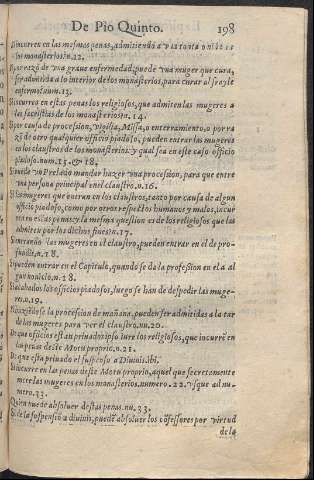 De Pio Quinto. 198
Si incurren en las mesmas penas, admitiendo a
los monasterios.n.12.
Si por razō de vna graue enfermedad, puede vna muger que cura,
ser admitida a lo interior de los monasterios, para curar al frayle
enfermo.num.13.
Si incurren en estas penas los religiosos, que admiten las mugeres a
las sacristias de los monasterios.n.14.
Si por causa de procession, vigilia, Missa, o enterramiento, o por ra
zō de otro qualquier officio piadoso, pueden entrar las mugeres
en los claustros de los monasterios: y qual sea en este caso officio
piadoso.num.15.& 18.
Si puede vn Prelado mandar hazer vna procession, para que entre
vna persona principal en el claustro.n.16.
Si las mugeres que entran en los claustros, tanto por causa de algun
officio piadoso, como por otros respectos humanos y malos, incur
ren en estas penas: y la mesma question es de los religiosos que las
admiten por los dichos fines.n.17.
Si entrando las mugeres en el claustro, pueden entrar en el de pro-
fundis.n.18.
Si pueden entrar en el Capitulo, quando se da la profession en el a al
gun nouicio.n.18.
Si acabados los officios piadosos, luego se han de despedir las muge-
res.n.19.
No aziēdose la procession de mañana, pueden ser admitidas a la tar
de las mugeres para ver el claustro.nu.20.
De que officios estan priuados ipso iure los religiosos, que incurrē en
las penas deste Motu proprio.n.21.
De que esta priuado el suspenso a Diuinis.ibi.
Si incurre en las penas deste Motu proprio, aquel que secretamente
mete las mugeres en los monasterios.numero.22.vsque al nu-
mero.33.
Quien puede absoluer destas penas.nu.33.
Si de la suspensiō a diuinis, puedē absoluer los cōfessores por virtud
de la